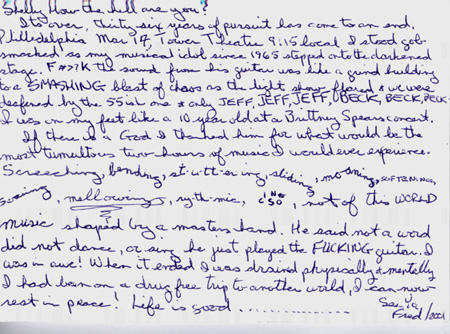 Shelly How the hell are you?
Its over, thirty six years of pursuit has come to an end.
Philidelphia Mar 17, Tower Theater 9:15 local I stood gob
smacked as my musical idol since 1965 stepped onto the darkened
stage. F#>?K the sound from his guitar was like a grund building
to a SMASHING blast of chaos as the light show flared & we were
deafened by the 55ish one & only JEFF, JEFF, JEFF, BECK, BECK, BECK
I was on my feet like a 10 year old at a Brittney Spears concert.
If there is a God I thanked him for what would be the
most tumultous two hours of music I would ever experience.
Screeching, bending, st-utt-er-ing, sliding, moaning, SOFTENING,
soaring, mellowing, ryth-mic, not of this WORLD
music shaped by a masters hand. He said not a word
did not dance, or sing he just played the FUCKING guitar. I
was in awe! When it ended I was drained physically & mentally
I had been on a drug free trip to another world, I can now
rest in peace! Life is good ..............
See ya
Fred/2001